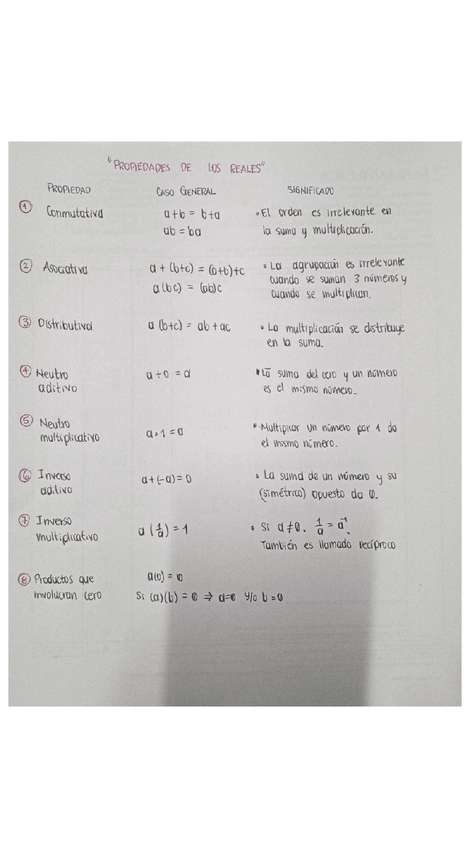 "PROPIEDADES DE LOS REALES"
PROPIEDAD CASO GENERAL SIGNIFICADO
① Conmutativa a+b = b+a • El orden es irrelevante en
ab = ba la suma y multiplicación.
② Asociativa a + (b+c) = (a+b)+c • La agrupación es irrelevante
a(bc) = (ab)c cuando se suman 3 números y
cuando se multiplican.
③ Distributiva a (b+c) = ab + ac • La multiplicación se distribuye
en la suma.
④ Neutro a+0 = a • La suma del cero y un número
aditivo es el mismo número.
⑤ Neutro • Multiplicar un número por 1 da
multiplicativo a·1 = a el mismo número.
⑥ Inverso a+(-a)=0 • La suma de un número y su
aditivo (simétrico) opuesto da 0.
⑦ Inverso a (1/a) = 1 • Si a≠0. 1/a = a⁻¹.
multiplicativo También es llamado recíproco
⑧ Productos que a(0) = 0
involucran cero Si (a)(b) = 0 ⇒ a=0 y/o b=0